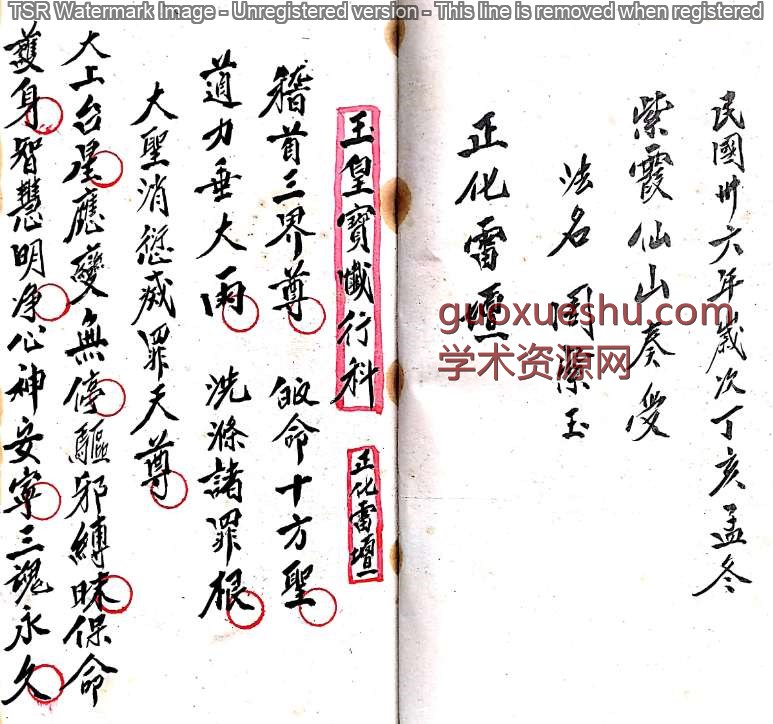 TSR Watermark Image - Unregistered version - This line is removed when registered
民國卅六年歲次丁亥孟冬
紫霞仙山奏受
法名周玉
正化雷壇
guoxueshu.com
学术资源网
玉皇寶懺行科 正化雷壇
稽首三界尊 皈命十方聖
道力垂大雨 洗滌諸罪根
大聖消愆滅罪天尊
大上台星應變無停驅邪縛昧保命
護身智慧明净心神安寧三魂永久